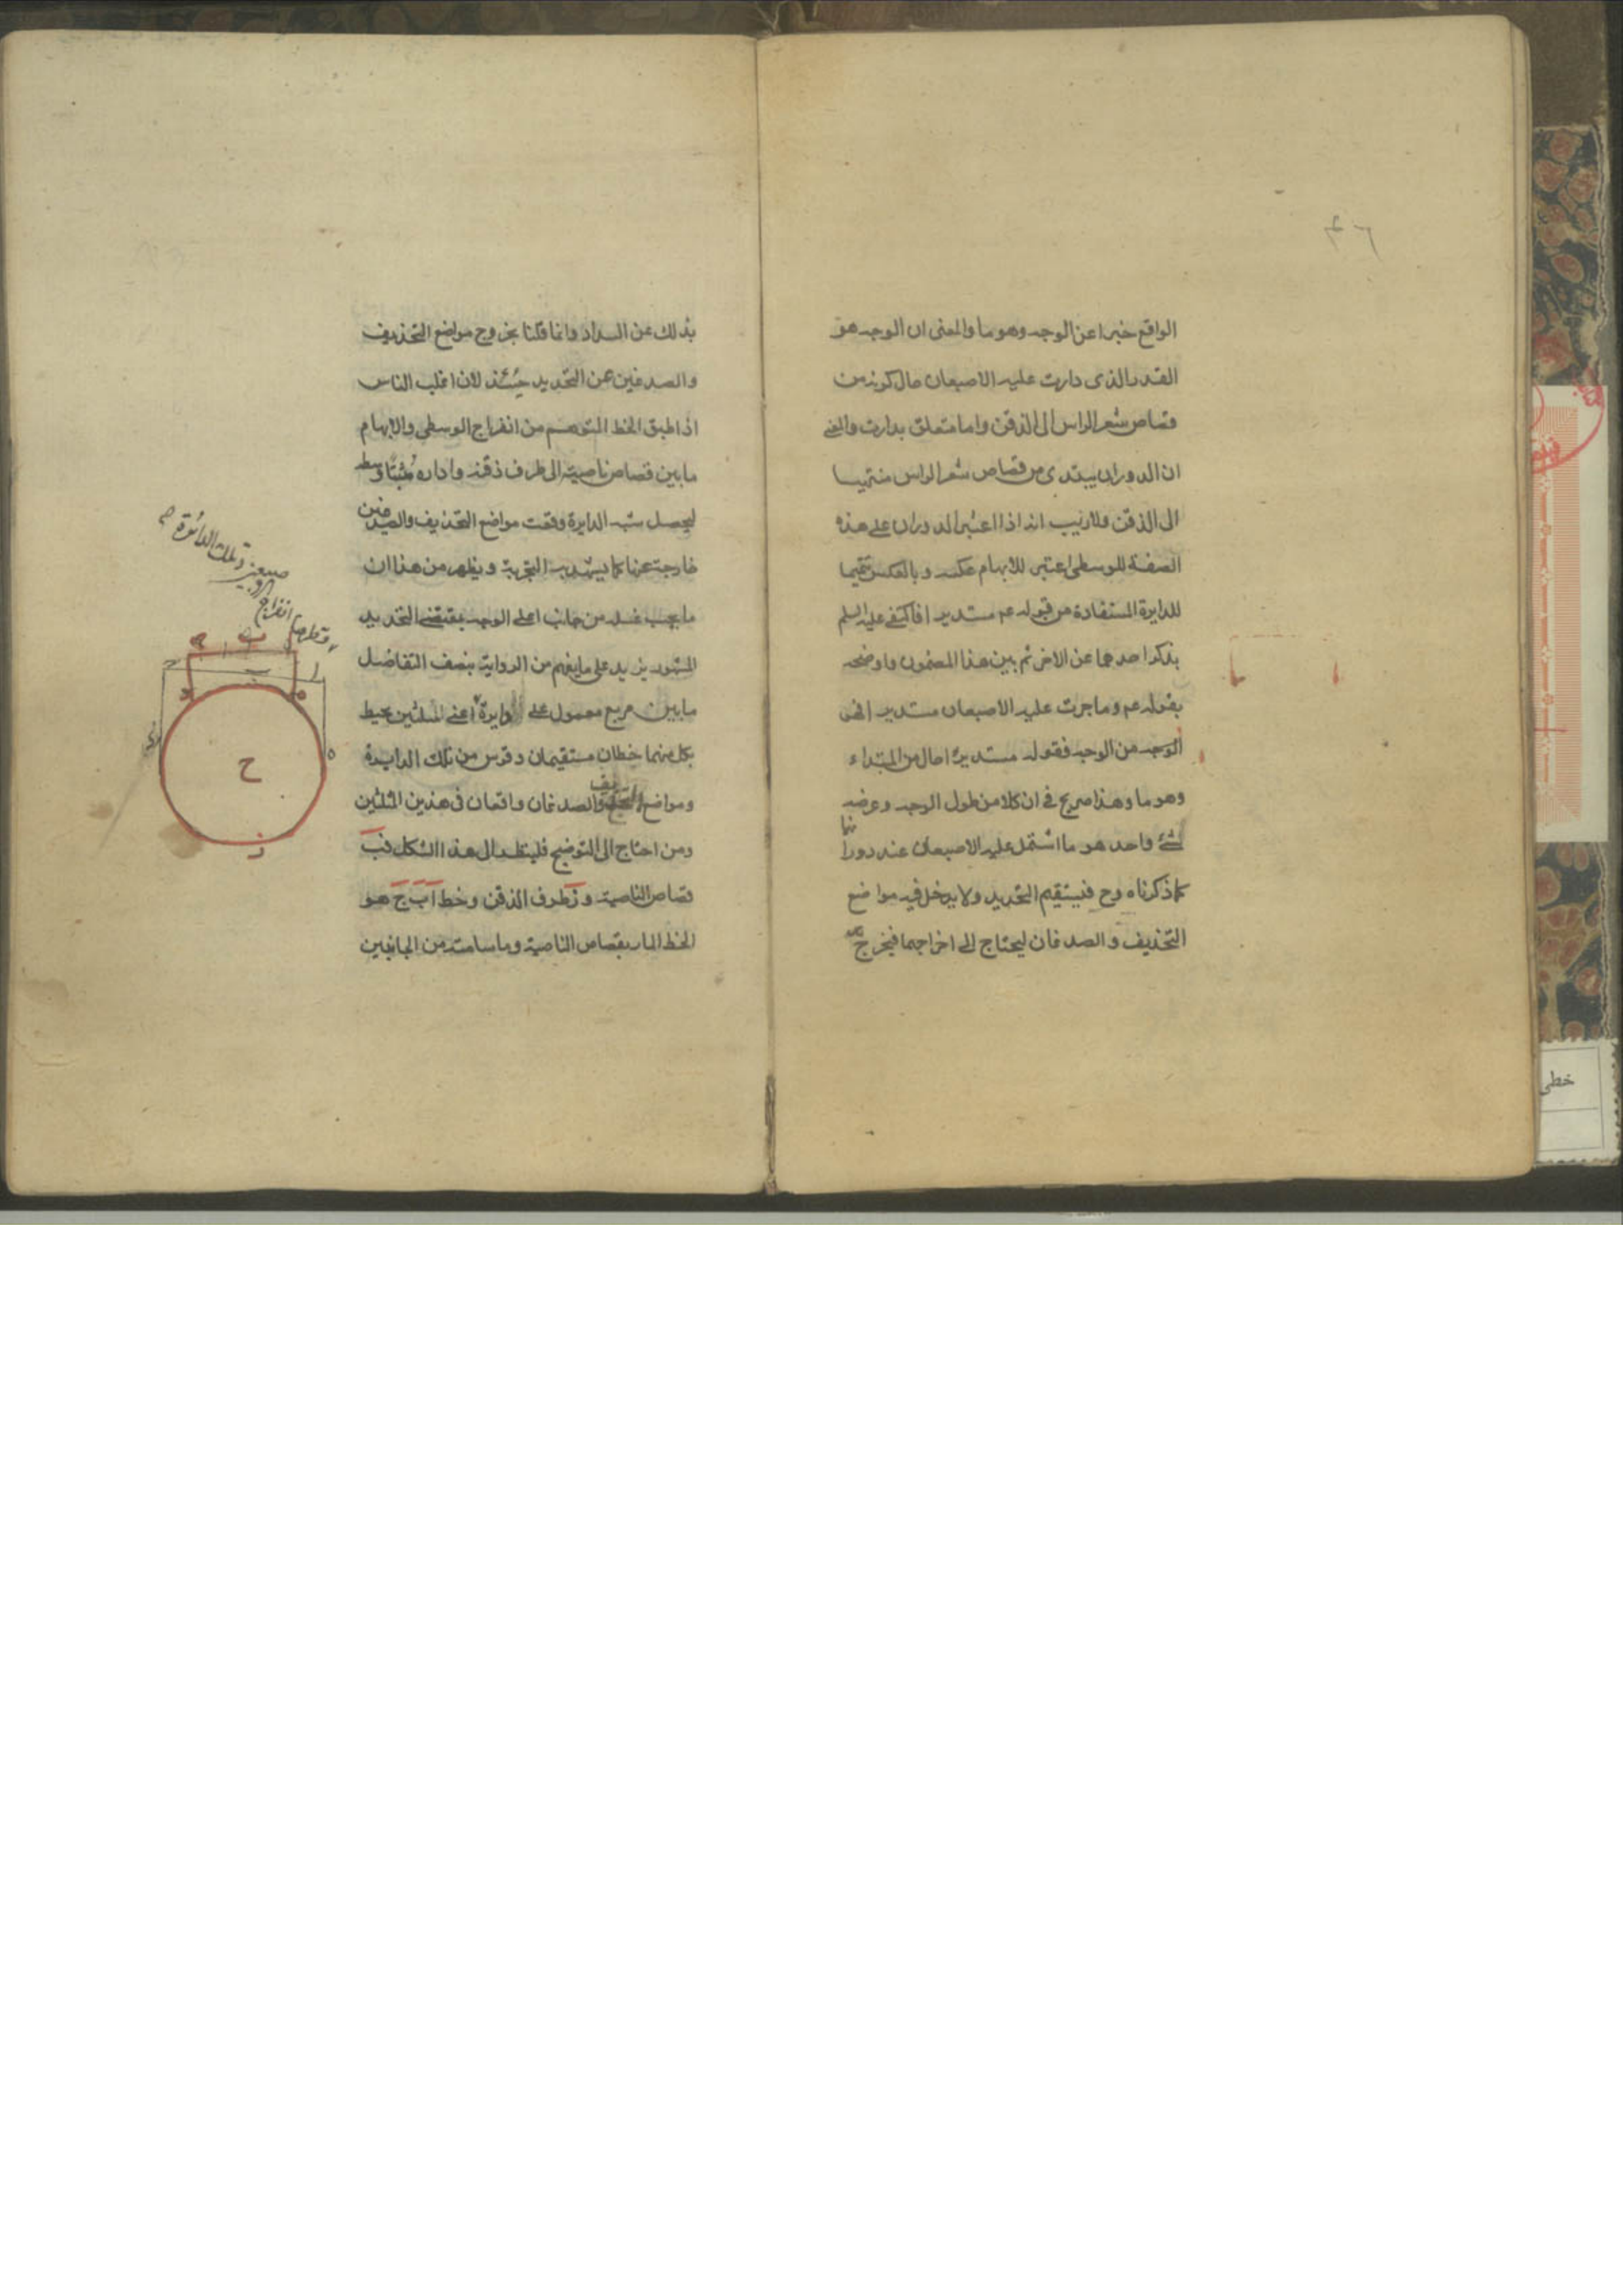 الواقع خبرا عن الوجه وهو ما والمعنى ان الوجه هو
القدر الذى دارت عليه الاصبعان حال كونه من
قصاص شعر الراس الى الذقن واما متعلق بدارت والمعنى
ان الدوران يبتدى من قصاص شعر الراس منتهيا
الى الذقن ولا ريب انه اذا اعتبر الدوران على هذه
الصفة للوسطى اعتبر للابهام عكسه وبالعكس تتميما
للدايرة المستفادة من قوله عم مستديرا فاكتفى عليه السلم
بذكر احدهما عن الاخر ثم بين هذا المضمون واوضحه
بقوله عم وما جرت عليه الاصبعان مستديرا فهو
الوجه من الوجه فقوله مستديرا حال من المبتداء
وهو ما وهذا صريح فى ان كلا من طول الوجه وعرضه
شئ واحد هو ما اشتمل عليه الاصبعان عند دورانهما
كما ذكرناه وح فيستقيم التحديد ولا يدخل فيه مواضع
التحذيف والصدغان ليحتاج الى اخراجهما فيخرج
بذلك عن السداد وانما قلنا بخروج مواضع التحذيف
والصدغين عن التحديد حينئذ لان اغلب الناس
اذا طبق الخط المتوهم من انفراج الوسطى والابهام
ما بين قصاص ناصيته الى طرف ذقنه واداره مثبتا وسطه
ليحصل شبه الدايرة وقعت مواضع التحذيف والصدغين
خارجة عنها كما يشهد به التجربة ويظهر من هذا ان
ما يجب غسله من جانب اعلى الوجه بمقتضى التحديد
المشهور يزيد على ما يفهم من الرواية بنصف التفاضل
ما بين مربع معمول على دايرة اعنى المثلثين يحيط
بكل منهما خطان مستقيمان وقوس من تلك الدايرة
ومواضع التحذيف والصدغان واقعان فى هذين المثلثين
ومن احتاج الى التوضيح فلينظر الى هذا الشكل فب
قصاص الناصية و ز طرف الذقن وخط اب ج هو
الخط المار بقصاص الناصية وما سامته من الجانبين
وتلك الدائرة
انفراج
ب
ا
ح
ز
خطى